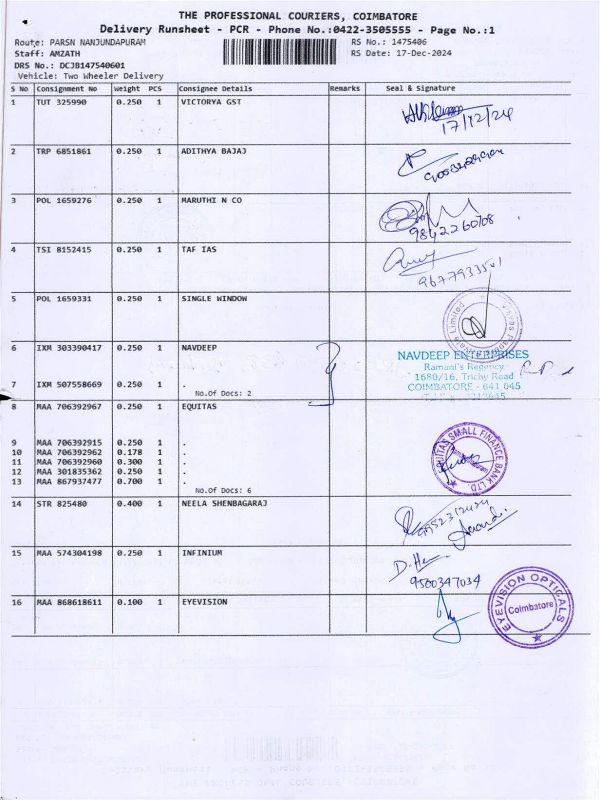 THE PROFESSIONAL COURIERS, COIMBATORE
Delivery Runsheet - PCR - Phone No.:0422-3505555 - Page No.:1
Route: PARSN NANJUNDAPURAM RS No.: 1475406
Staff: AMZATH RS Date: 17-Dec-2024
DRS No.: DCJB147540601
Vehicle: Two Wheeler Delivery
S No Consignment No Weight PCS Consignee Details Remarks Seal & Signature
1 TUT 325990 0.250 1 VICTORYA GST
17/12/24
2 TRP 6851861 0.250 1 ADITHYA BAJAJ
3 POL 1659276 0.250 1 MARUTHI N CO
9842260708
4 TSI 8152415 0.250 1 TAF IAS
9677933501
5 POL 1659331 0.250 1 SINGLE WINDOW
Limited
6 IXM 303390417 0.250 1 NAVDEEP
NAVDEEP ENTERPRISES
Ramani's Regency
1680/16, Trichy Road
COIMBATORE - 641 045
7 IXM 507558669 0.250 1 .
No.Of Docs: 2
8 MAA 706392967 0.250 1 EQUITAS
EQUITAS SMALL FINANCE BANK LTD.
9 MAA 706392915 0.250 1 .
10 MAA 706392962 0.178 1 .
11 MAA 706392960 0.300 1 .
12 MAA 301835362 0.250 1 .
13 MAA 867937477 0.700 1 .
No.Of Docs: 6
14 STR 825480 0.400 1 NEELA SHENBAGARAJ
15 MAA 574304198 0.250 1 INFINIUM
9500347034
16 MAA 868618611 0.100 1 EYEVISION
EYEVISION OPTICALS
Coimbatore